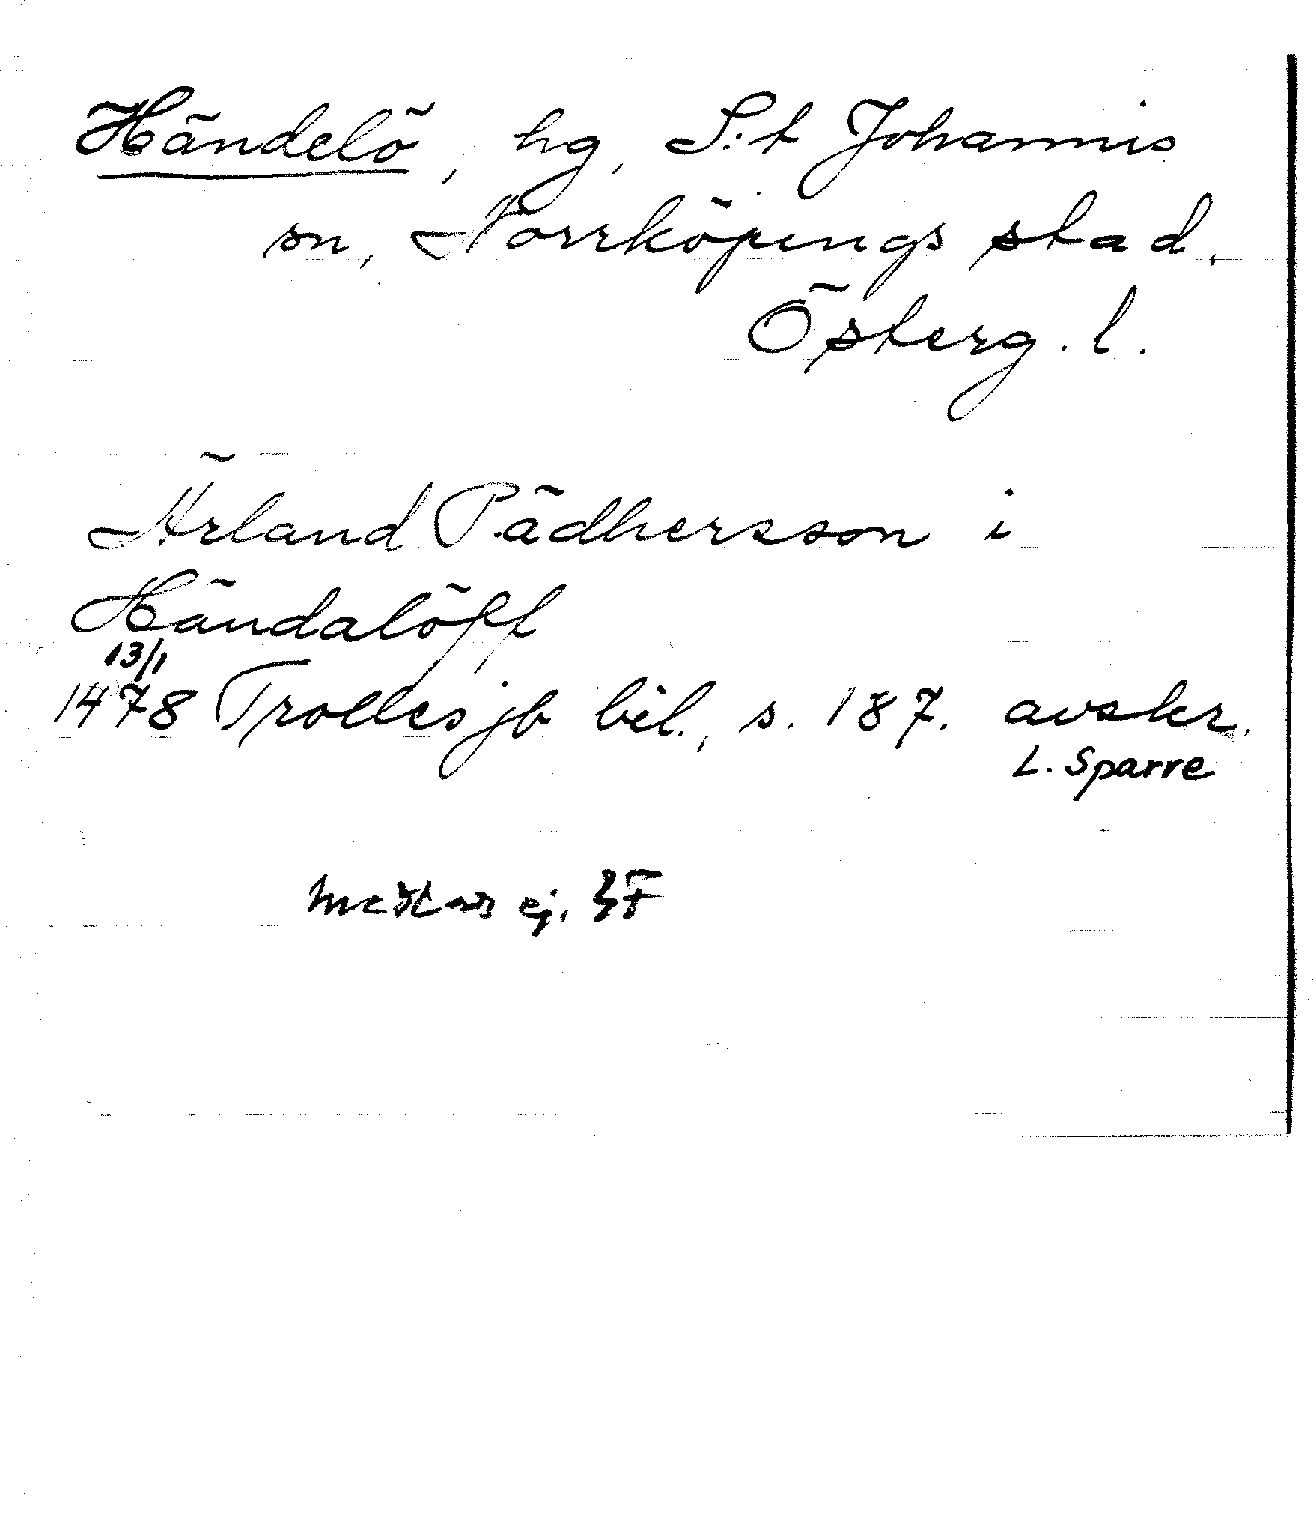 Händelö, hg, S:t Johannis
sn, Norrköpings stad,
Österg. l.
Ärland Pädhersson i
Händalöff
13/1
1478 Trolles jb bil., s. 187. avskr.
L. Sparre
ej.